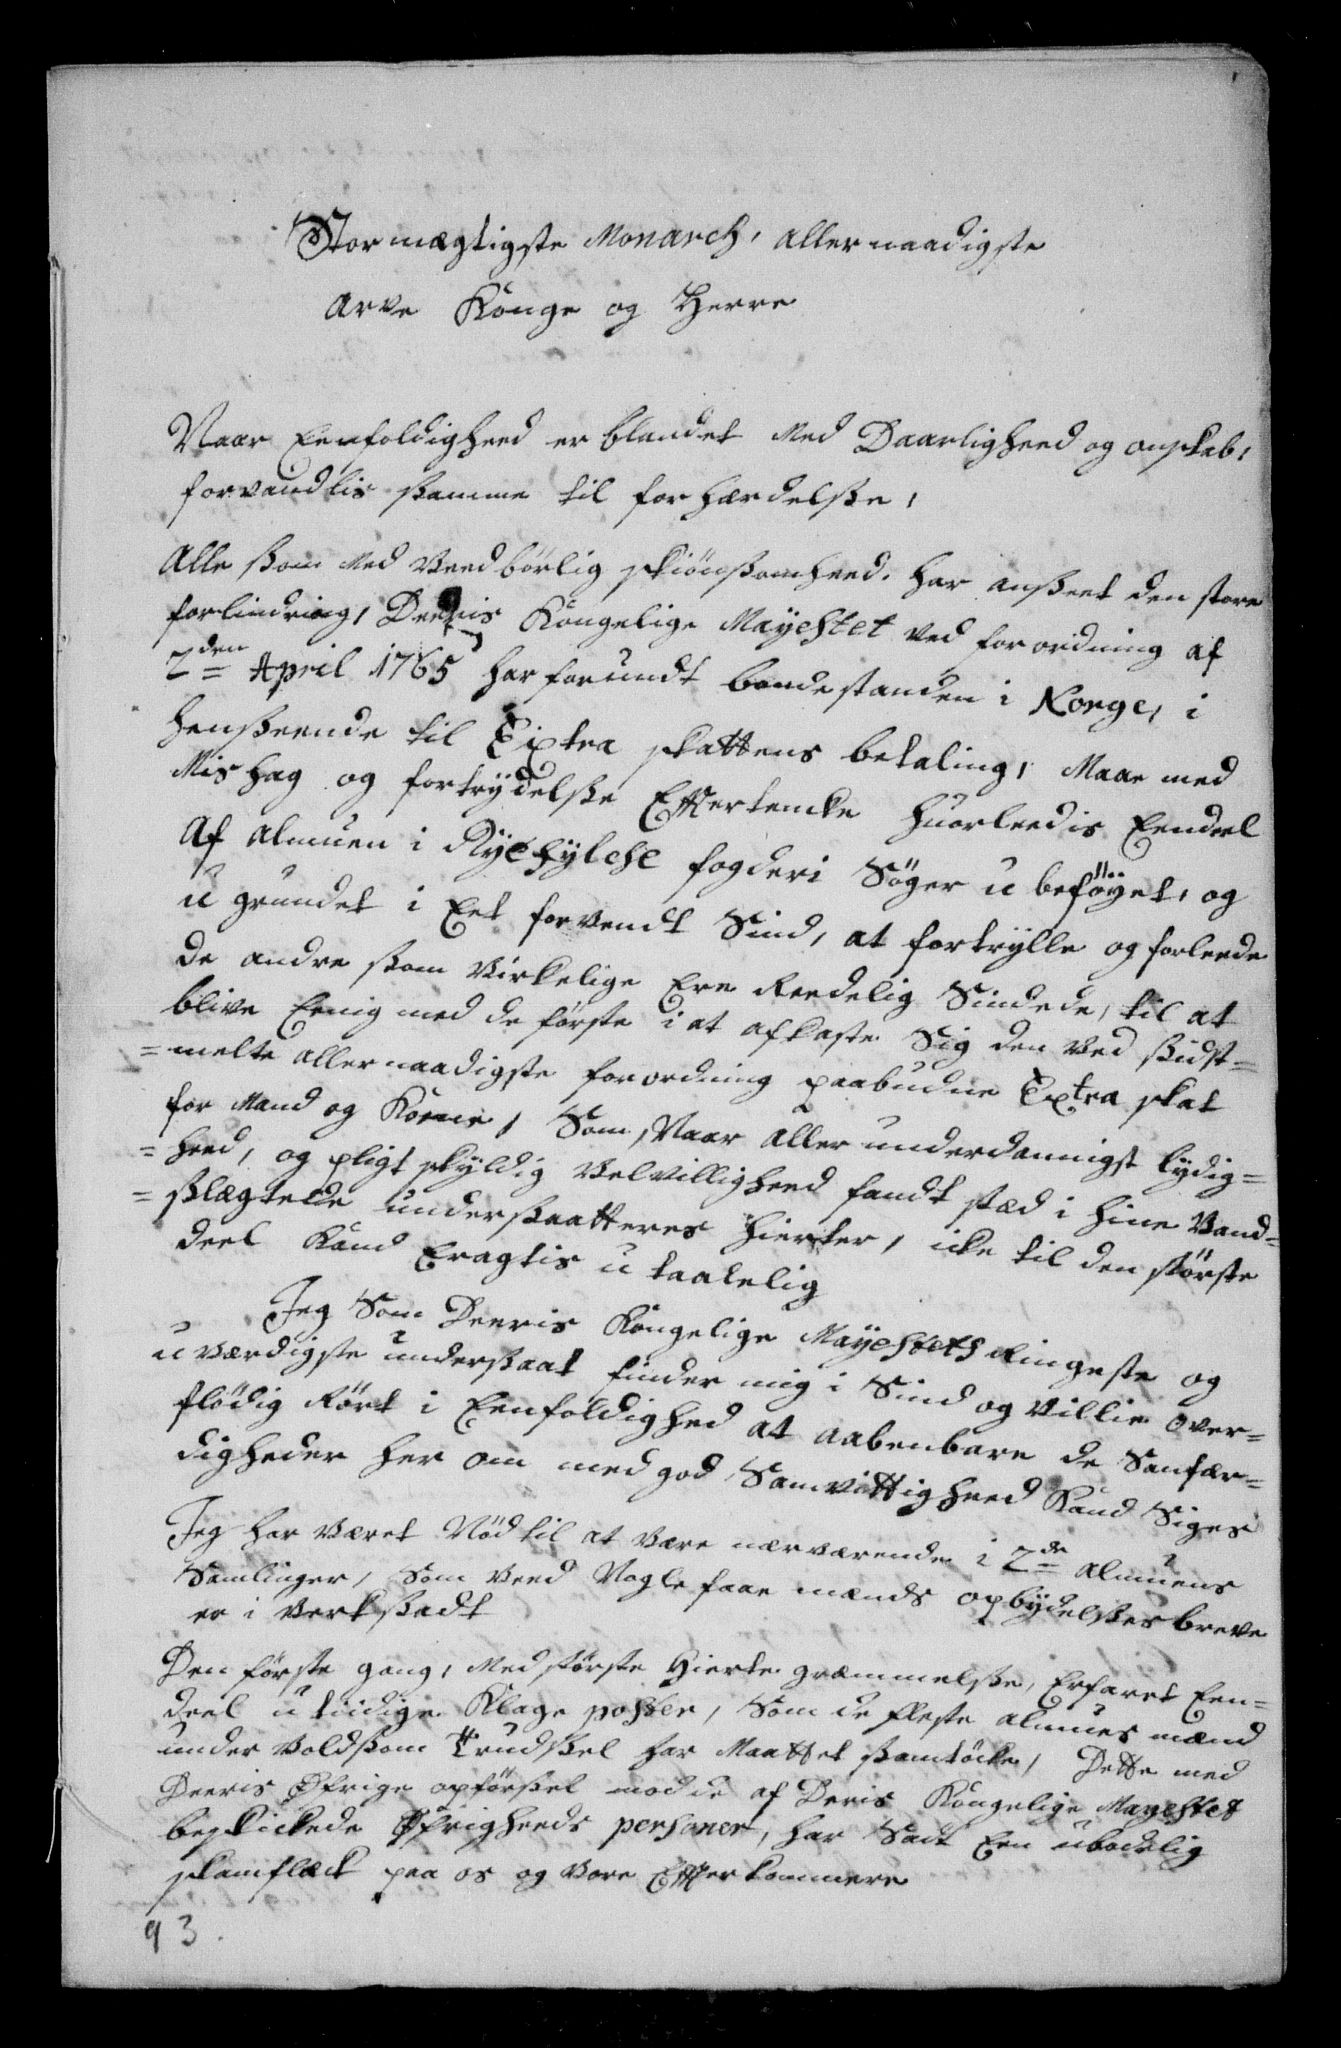 Stormægtigste Monarch, allernaadigste
Arve Konge og Herre
Naar Eenfoldigheed er blandet Med Daarligheed og onskab,
forvandlis samme til forhærdelse,
Alle som Med Veedbørlig skiønsomheed har anseet den store
forlindring, Deeris Kongelige Mayestet ved forordning af
2den April 1765 har forundt bondestanden i Norge, i
henseende til Extra skattens betaling, Maae med
Mishag og fortrydelse Eftertencke huorleedis Eendeel
Af Almuen i Ryefylche fogderi Søger u beføyet, og
u grundet i Eet forvendt Sind, at fortrylle og forleede
de andre som Virkelige Ere Reedelig Sindede, til at
blive Eenig med de første i at afkaste Sig den Ved sidst=
=melte allernaadigste forordning paabudne Extra skat
for Mand og Kone, Som, Naar allerunderdannigst lydig=
=heed, og pligtskyldig Velvilligheed fandt stæd i hine Vand=
=slægtede undersaatteres Hierter, icke til den største
deel Kand Eragtis u taalelig
Jeg Som Deeris Kongelige Mayestets Ringeste og
u værdigste undersaat finder mig i Sind og Villie over=
flødig Rørt i Eenfoldighed at aabenbare de Sanfær=
digheder her om med god Samvittigheed Kand Siges
Jeg har Været Nød til at Være nærværende i 2de almuens
Samlinger, Som Veed Nogle faae mænds opbydelses breve
er i Verksadt
Den første gang, Med største Hierte græmmelse, Erfaret Een=
deel u tiidige Klage poster, Som de fleste almues mænd
under Voldsom Trudsel har Maattet samtøcke, Dette med
Deeris Øfrige opførsel mod de af Deris Kongelige Mayestet
beskickede Øfrigheeds personer, har Sadt Een ubodelig
skamflæk paa os og Vore Efterkommere
93.